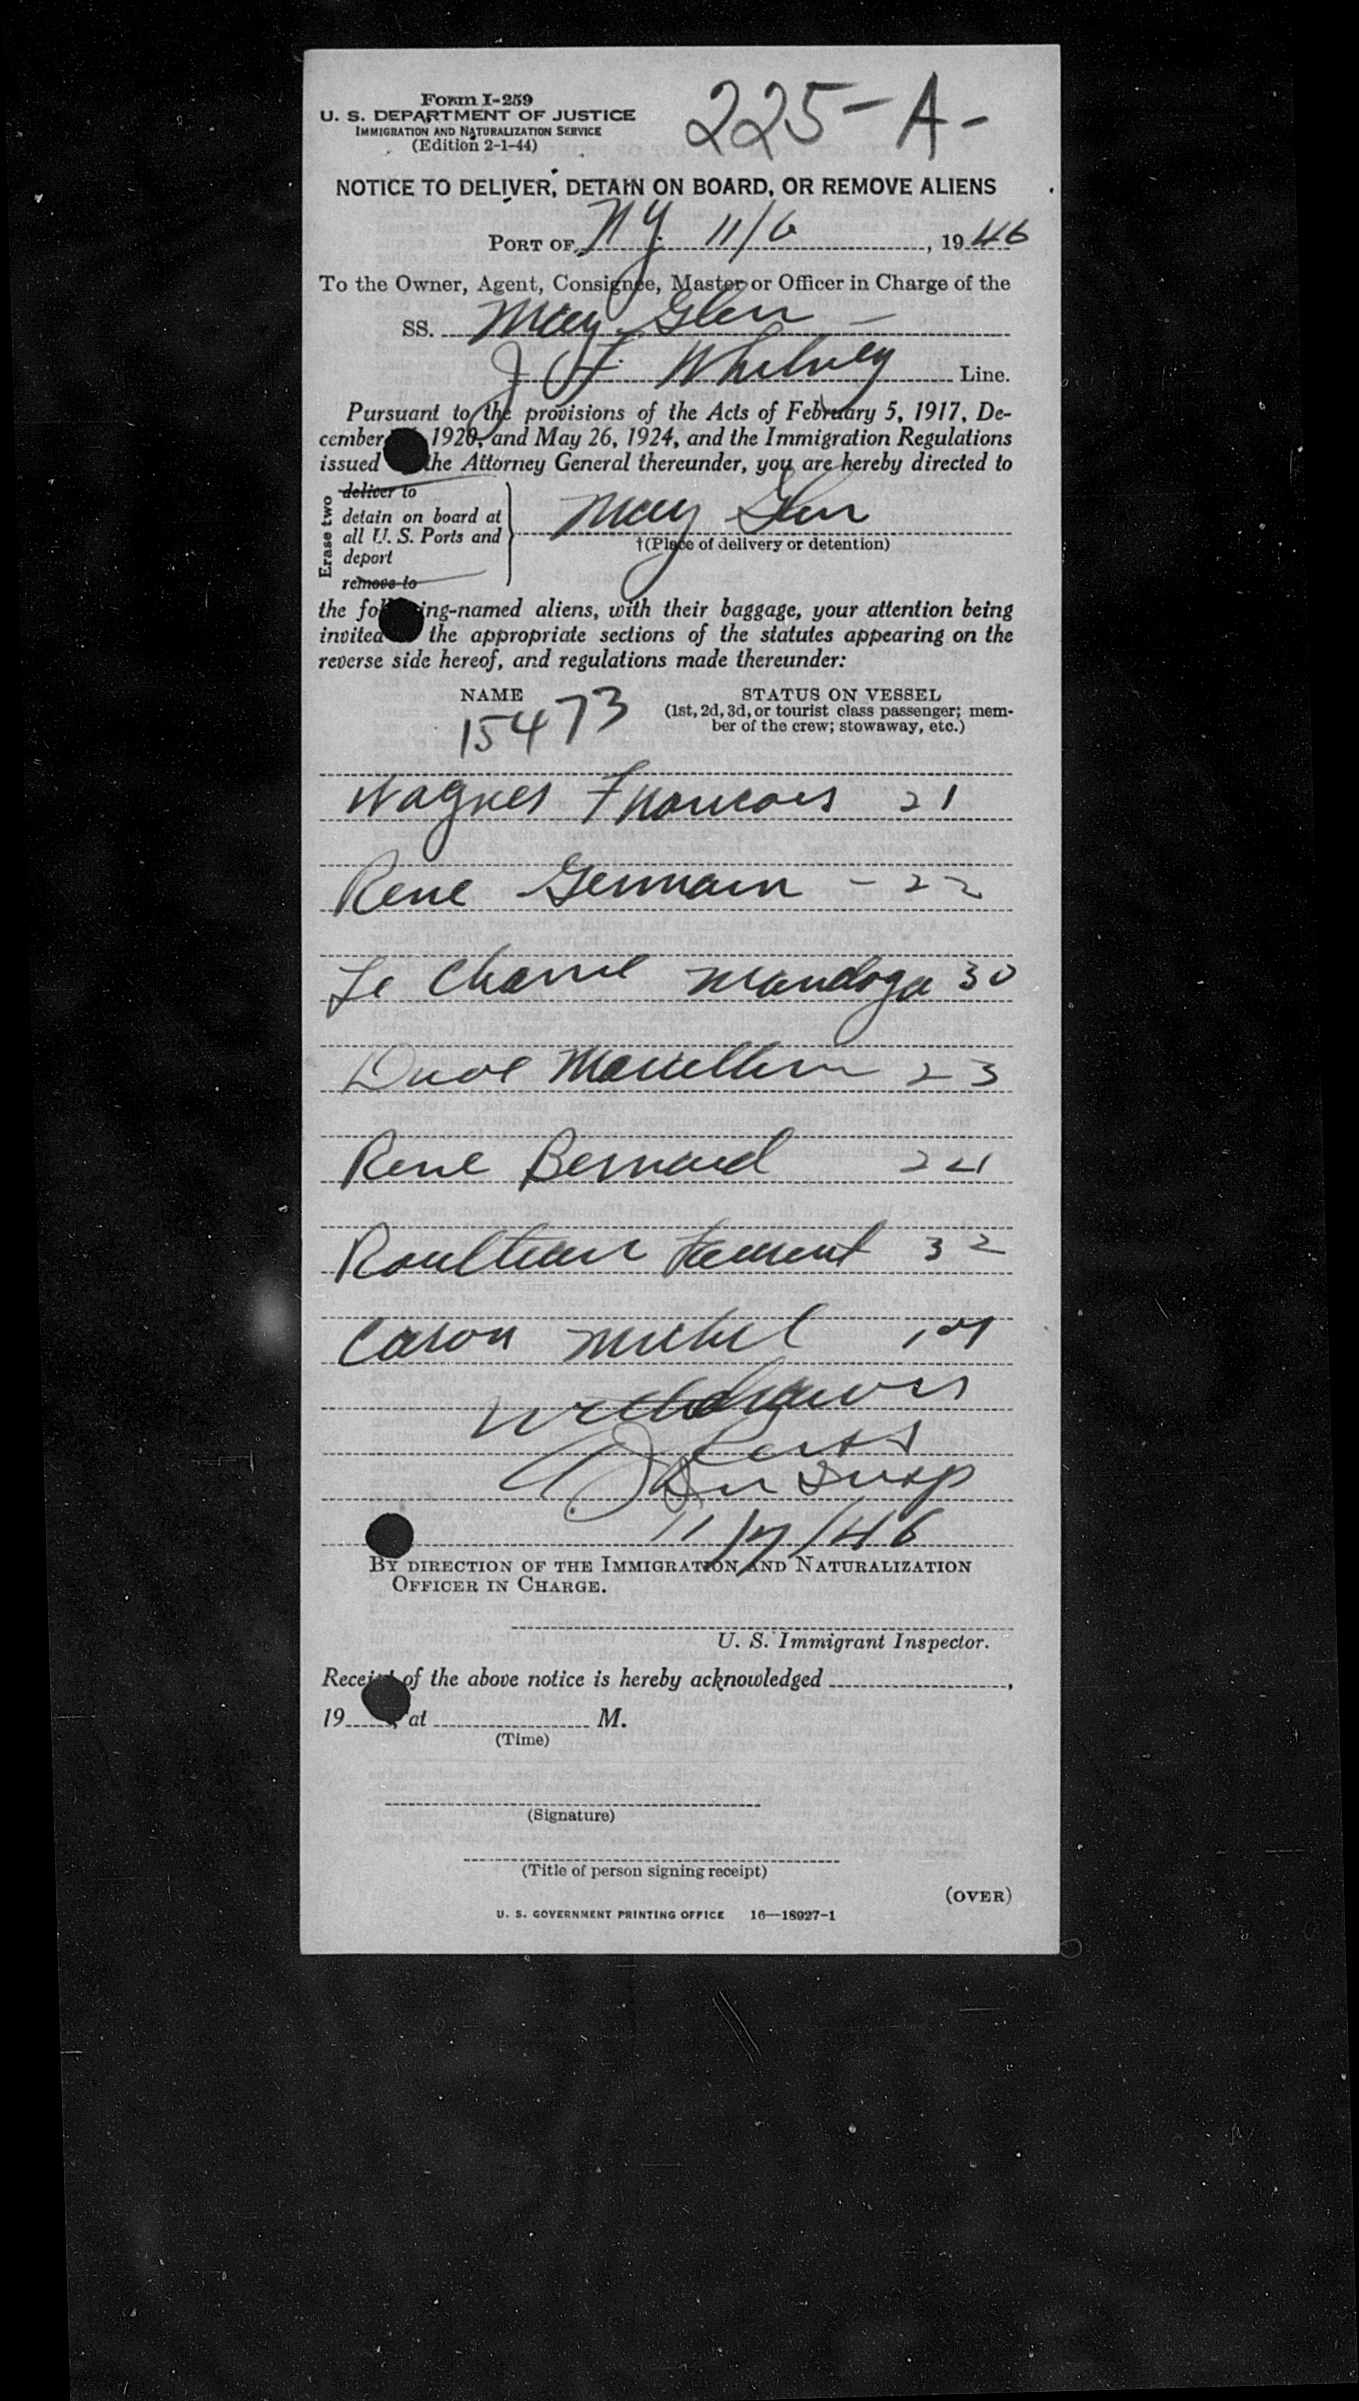 Form I-259
225-A-
U. S. DEPARTMENT OF JUSTICE
IMMIGRATION AND NATURALIZATION SERVICE
(Edition 2-1-44)
NOTICE TO DELIVER, DETAIN ON BOARD, OR REMOVE ALIENS
PORT OF NY 11/6, 1946
To the Owner, Agent, Consignee, Master or Officer in Charge of the
SS. May Glen
J H Whitney Line.
Pursuant to the provisions of the Acts of February 5, 1917, De-
cember 1920, and May 26, 1924, and the Immigration Regulations
issued the Attorney General thereunder, you are hereby directed to
Erase two
deliver to
detain on board at
all U. S. Ports and
deport
remove to
May Glen
†(Place of delivery or detention)
the following-named aliens, with their baggage, your attention being
invited the appropriate sections of the statutes appearing on the
reverse side hereof, and regulations made thereunder:
NAME
15473
STATUS ON VESSEL
(1st, 2d, 3d, or tourist class passenger; mem-
ber of the crew; stowaway, etc.)
Wagner Francois 21
Rene Germain - 22
Le Charme 30
Marcellin 23
Rene Bernard 24
32
Caron Michel
Withdrawn
Insp
11/7/46
BY DIRECTION OF THE IMMIGRATION AND NATURALIZATION
OFFICER IN CHARGE.
U. S. Immigrant Inspector.
Receipt of the above notice is hereby acknowledged ,
19 , at M.
(Time)
(Signature)
(Title of person signing receipt)
(OVER)
U. S. GOVERNMENT PRINTING OFFICE 16—18927-1